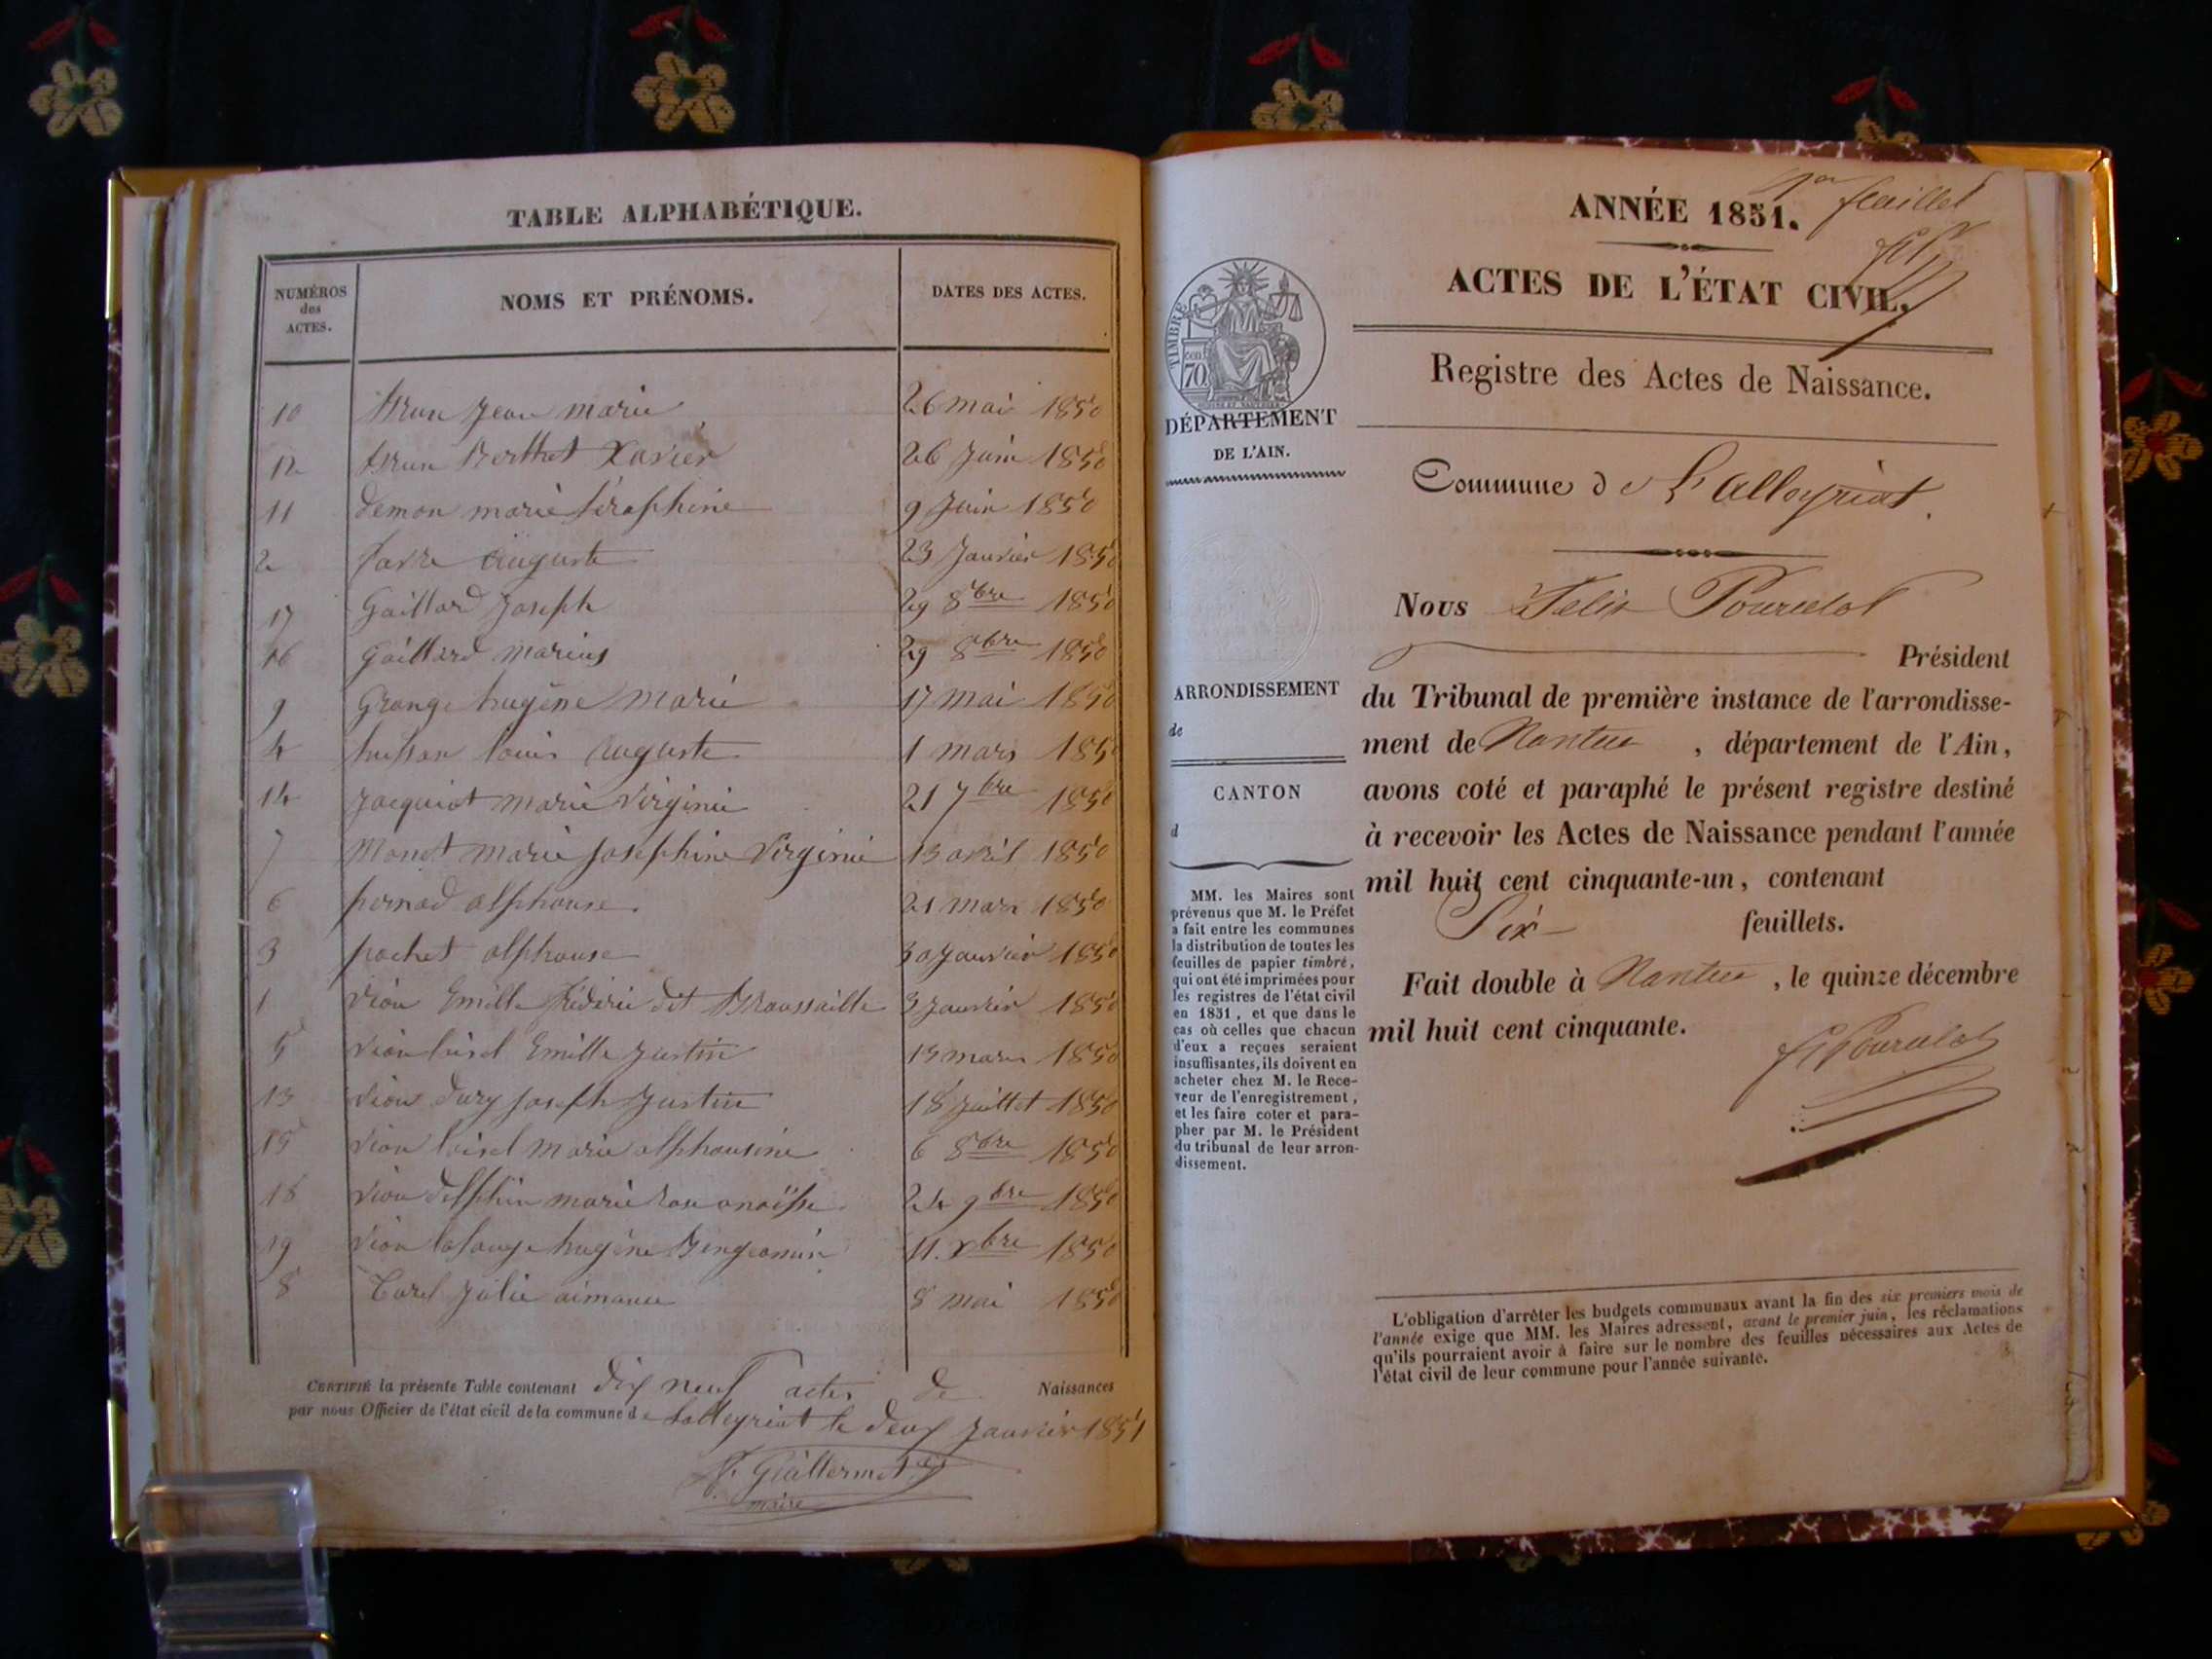 TABLE ALPHABÉTIQUE.
NUMÉROS
des
ACTES.
NOMS ET PRÉNOMS.
DATES DES ACTES.
10 Brun Jean marie 26 mai 1850
12 Brun Berthet Xavier 26 Juin 1850
11 Demon marie Séraphine 9 Juin 1850
2 favre Auguste 23 Janvier 1850
17 Gaillard Joseph 29 8bre 1850
16 Gaillard marius 29 8bre 1850
9 Grange hugène Marie 17 mai 1850
4 husson louis Auguste 1 mars 1850
14 Jacquiot marie Virginie 21 7bre 1850
7 Monet marie Josephine Virginie 13 avril 1850
6 pernod alphonse 21 mars 1850
3 pochet alphonse 30 Janvier 1850
1 Vion Emille fréderic dit Broussaille 3 Janvier 1850
5 Vion loisel Emille Justin 15 mars 1850
13 Vion Dury Joseph Justin 18 Juillet 1850
15 Vion loisel marie alphonsine 6 8bre 1850
18 Vion delphin marie rose anaïsse 24 9bre 1850
19 Vion hugène Bengeamin 11. xbre 1850
8 Julie aimance 8 mai 1850
CERTIFIÉ la présente Table contenant dix neuf actes de Naissances
par nous Officier de l'état civil de la commune de Lalleyriat le deux Janvier 1851
Guillermet
maire
1er feuillet
ANNÉE 1851.
ACTES DE L'ÉTAT CIVIL.
Registre des Actes de Naissance.
TIMBRE
70
DÉPARTEMENT
DE L'AIN.
Commune de Lalleyriat.
Nous Félix Pourcelot
Président
ARRONDISSEMENT
de
CANTON
d
du Tribunal de première instance de l'arrondisse-
ment de Nantua, département de l'Ain,
avons coté et paraphé le présent registre destiné
à recevoir les Actes de Naissance pendant l'année
mil huit cent cinquante-un, contenant
Six feuillets.
Fait double à Nantua, le quinze décembre
mil huit cent cinquante.
Pourcelot
MM. les Maires sont
prévenus que M. le Préfet
a fait entre les communes
la distribution de toutes les
feuilles de papier timbré,
qui ont été imprimées pour
les registres de l'état civil
en 1851, et que dans le
cas où celles que chacun
d'eux a reçues seraient
insuffisantes, ils doivent en
acheter chez M. le Rece-
veur de l'enregistrement,
et les faire coter et para-
pher par M. le Président
du tribunal de leur arron-
dissement.
L'obligation d'arrêter les budgets communaux avant la fin des six premiers mois de
l'année exige que MM. les Maires adressent, avant le premier juin, les réclamations
qu'ils pourraient avoir à faire sur le nombre des feuilles nécessaires aux Actes de
l'état civil de leur commune pour l'année suivante.